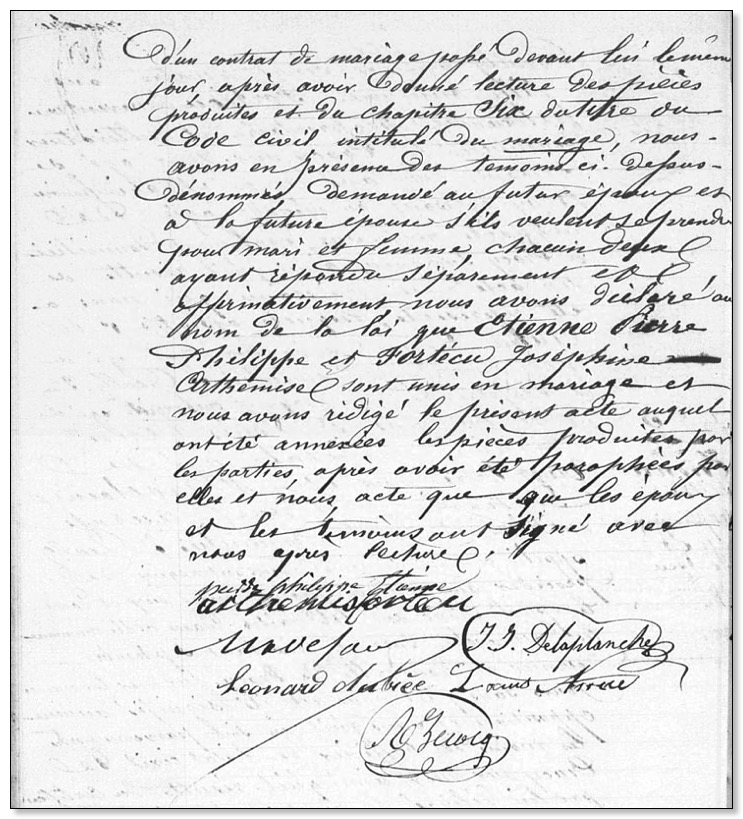 d'un contrat de mariage passé devant lui le même
jour, après avoir donné lecture des pièces
produites et du chapitre Six du titre du
Code civil intitulé du mariage, nous
avons en présence des temoins ci-dessus
dénommés demandé au futur époux et
à la future épouse S'ils veulent se prendre
pour mari et femme, chacun deux
ayant répondu séparement et
affirmativement nous avons déclaré au
nom de la loi que Etienne Pierre
Philippe et Fortécu Joséphine
Arthemise sont unis en mariage et
nous avons rédigé le présent acte auquel
ont été annexées les pièces produites par
les parties, après avoir été paraphées par
elles et nous, acte que que les époux
et les témoins ont signé avec
nous après lecture.
philippe étienne
arthemise
J. J. Delaplanche
Leonard Louis